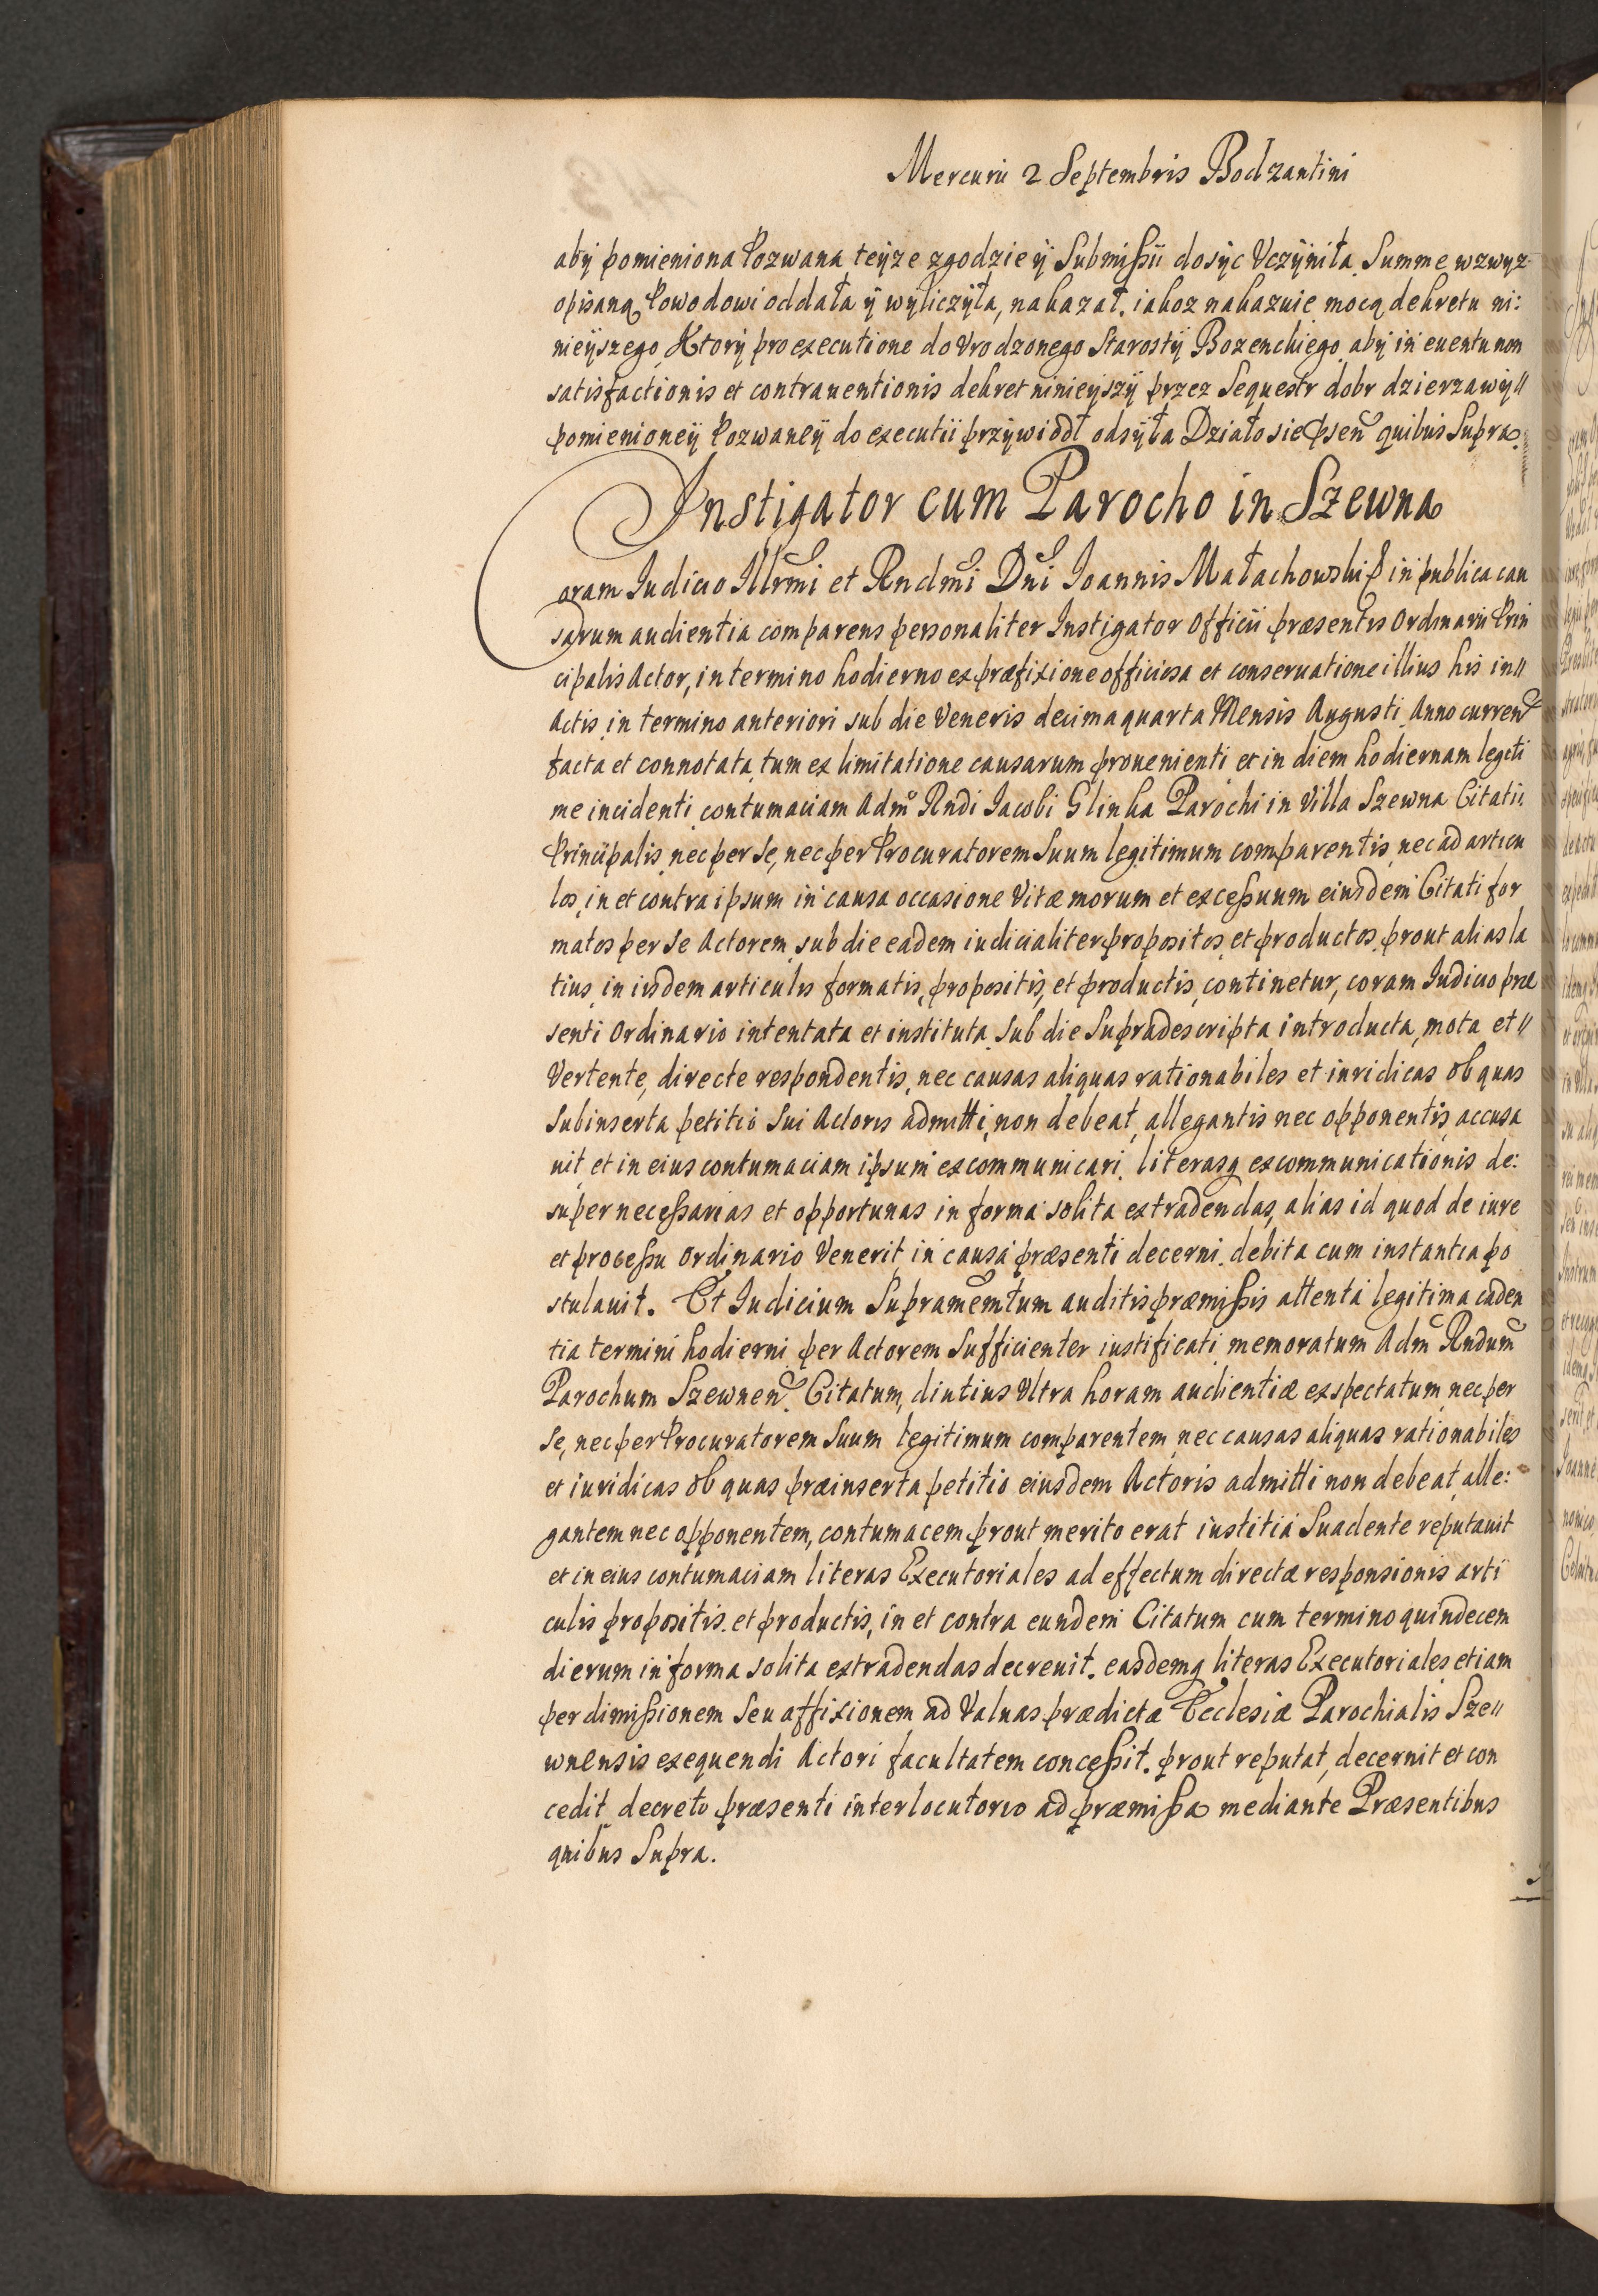 Mercurii 2 Septembris Bodzantini
aby pomieniona Pozwana teyze zgodzie y Submißii dosyc Vczyniła Summe wzwyz
opisaną Powodowi oddała y wyliczyła, nakazał. iakoz nakazuie mocą dekretu ni:
nieyszego Ktory pro executione do Vrodzonego Starosty Bozenckiego aby in euentu non
satisfactionis et contrauentionis dekret ninieyszy przez Sequestr dobr dzierzawy//
pomienioney Pozwaney do executii przywiodł odsyła Działo sie psen quibus Supra.
Instigator cum Parocho in Szewna
Coram Iudicio Illrmi et Rndmi Dni Ioannis Małachowski in publica cau
sarum audientia comparens personaliter Instigator Officii præsentis Ordinarii Prin
cipalis Actor, in termino hodierno ex præfixione officiosa et conseruatione illius his in//
Actis in termino anteriori sub die Veneris decima quarta Mensis Augusti Anno curren
facta et connotata, tum ex limitatione causarum prouenienti et in diem hodiernam legiti
me incidenti contumaciam Adm Rndi Iacobi Glinka Parochi in Villa Szewna Citati
Principalis nec per Se, nec per Procuratorem Suum legitimum comparentis nec ad articu
los, in et contra ipsum in causa occasione Vitæ morum et exceßuum eiusdem Citati for
matos per Se Actorem sub die eadem iudicialiter propositos et productos prout alias la
tius in iisdem articulis formatis, propositis, et productis continetur, coram Iudicio præ
senti Ordinario intentata et instituta Sub die Supradescripta introducta, mota et//
Vertente, directe respondentis, nec causas aliquas rationabiles et iuridicas ob quas
Subinserta petitio Sui Actoris admitti, non debeat, allegantis nec opponentis, accusa
uit, et in eius contumaciam ipsum excommunicari literasq excommunicationis de:
super neceßarias et opportunas in forma solita extradendas, alias id quod de iure
et proceßu ordinario Venerit in causa præsenti decerni debita cum instantia po
stulauit. Et Iudicium Supramemtum auditis præmißis attenta legitima caden
tia termini hodierni per Actorem Sufficienter iustificati memoratum Adm Rndum
Parochum Szewnen. Citatum, diutius Vltra horam audientiæ exspectatum nec per
Se, nec per Procuratorem Suum legitimum comparentem nec causas aliquas rationabiles
et iuridicas ob quas præinserta petitio eiusdem Actoris admitti non debeat alle:
gantem nec opponentem, contumacem prout merito erat iustitiá Suadente reputauit
et in eius contumaciam literas Executoriales ad effectum directæ responsionis arti
culis propositis et productis, in et contra eundem Citatum cum termino quindecem
dierum in forma solita extradendas decreuit. easdemq literas Executoriales etiam
per dimißionem Seu affixionem ad Valuas prædictæ Ecclesiæ Parochialis Sze//
wnensis exequendi Actori facultatem conceßit. prout reputat, decernit et con
cedit decreto præsenti interlocutorio ad præmißa mediante Præsentibus
quibus Supra.